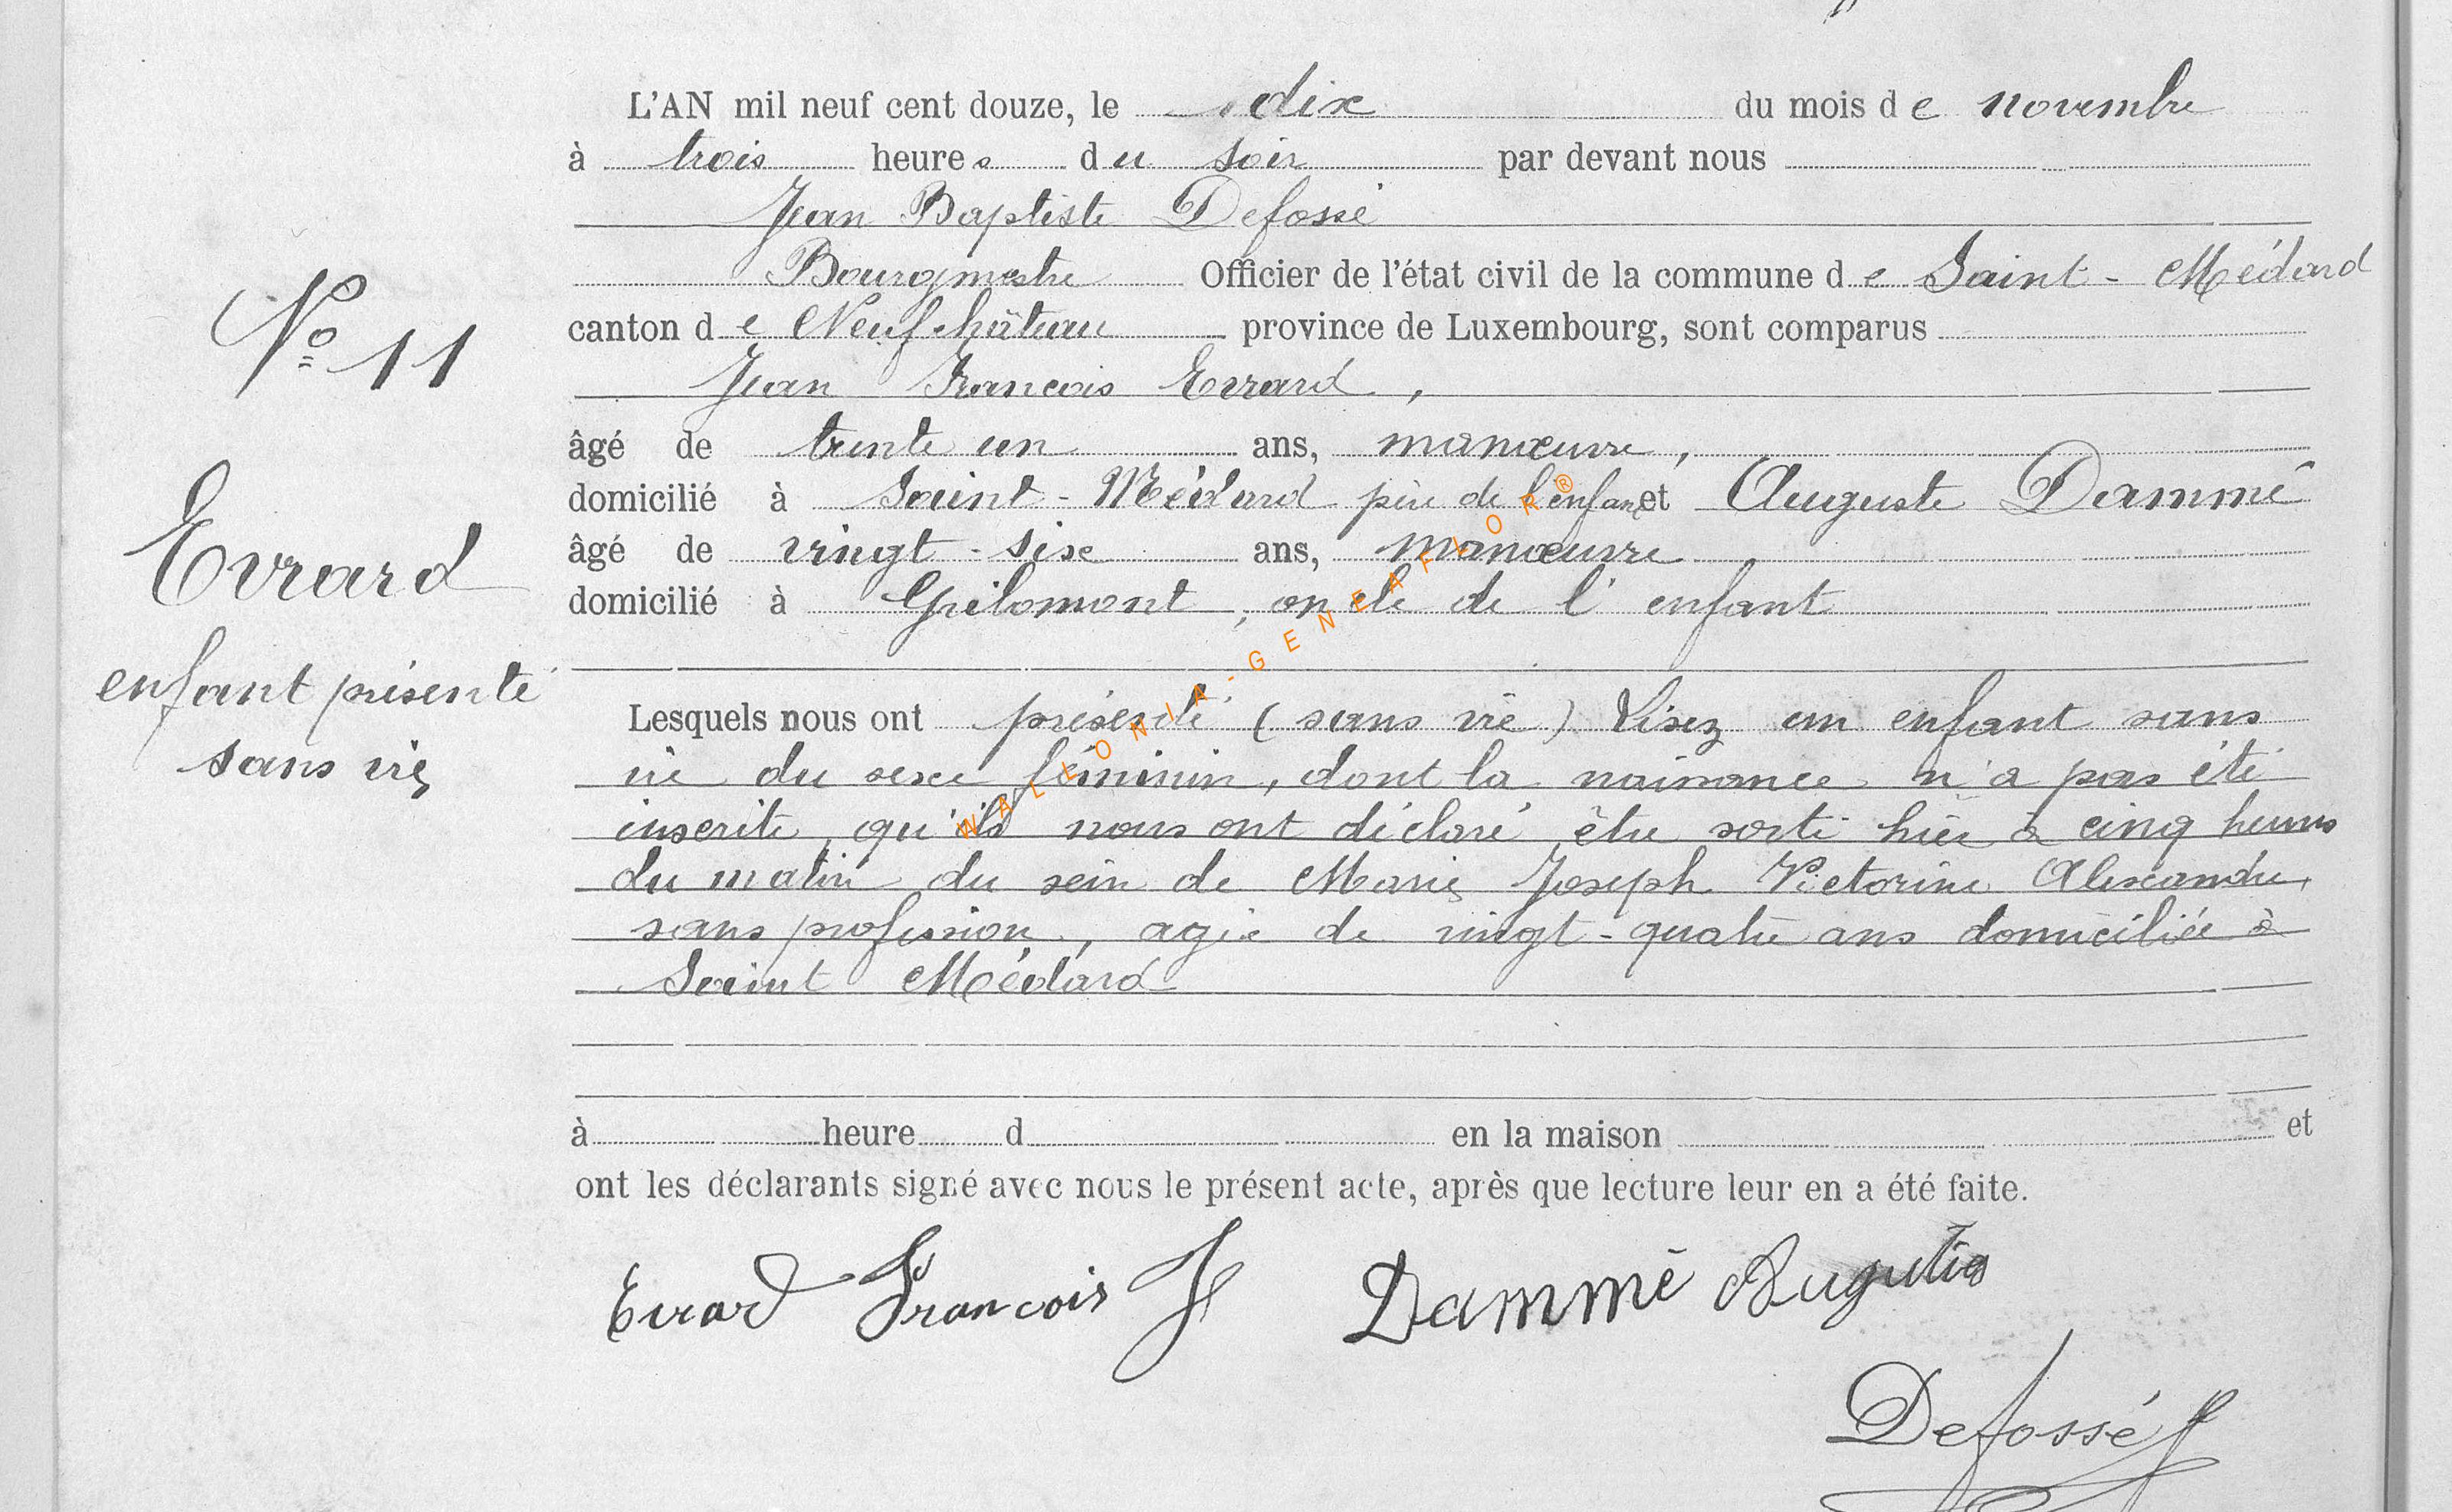 L'AN mil neuf cent douze, le dix du mois de novembre
à trois heures du soir par devant nous
Jean Baptiste Defossé
Bourgmestre Officier de l'état civil de la commune de Saint-Médard
N° 11
canton de Neufchâteau province de Luxembourg, sont comparus
Jean François Evrard,
âgé de trente un ans, manœuvre,
domicilié à Saint-Médard père de l'enfant et Auguste Dammé
Evrard
âgé de vingt-six ans, manœuvre
domicilié à Grilomont, oncle de l'enfant
enfant présenté
sans vie
Lesquels nous ont présenté (sans vie) Lisez un enfant sans
vie du sexe féminin, dont la naissance n'a pas été
inscrite, qu'ils nous ont déclaré être sorti hier à cinq heures
du matin du sein de Marie Joseph Victorine Alexandre,
sans profession, agée de vingt-quatre ans domiciliée à
Saint Médard
à heure d en la maison et
ont les déclarants signé avec nous le présent acte, après que lecture leur en a été faite.
Evrard François J Dammé
Defossé
WALLONIA-GENEAFLOR®